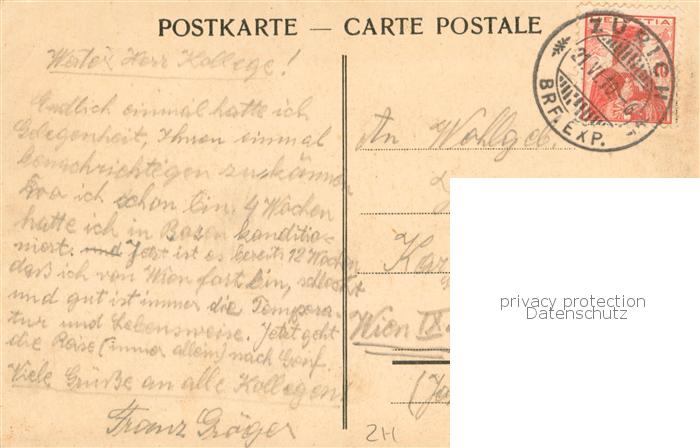 POSTKARTE — CARTE POSTALE
HELVETIA
ZÜRICH
BRF. EXP.
Werter Herr Kollege!
Endlich einmal hatte ich
Gelegenheit, Ihnen einmal
benachrichtigen zu können
wo ich schon bin. 4 Wochen
hatte ich in Bozen konditio-
niert. und Jetzt ist es bereits 12 Wochen
daß ich von Wien fort bin, schlecht
und gut ist immer die Tempera-
tur und Lebensweise. Jetzt geht
die Reise (immer allein) nach Genf.
Viele Grüße an alle Kollegen!
Franz Gröger
An Wohlgeb.
Wien IX.
2H
privacy protection
Datenschutz